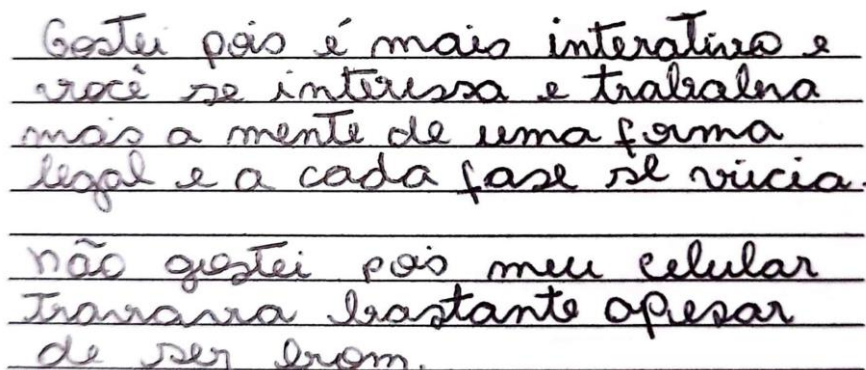 Gostei pois é mais interativo e
você se interessa e trabalha
mais a mente de uma forma
legal e a cada fase se vicia.
não gostei pois meu celular
Travava bastante apesar
de ser bom.